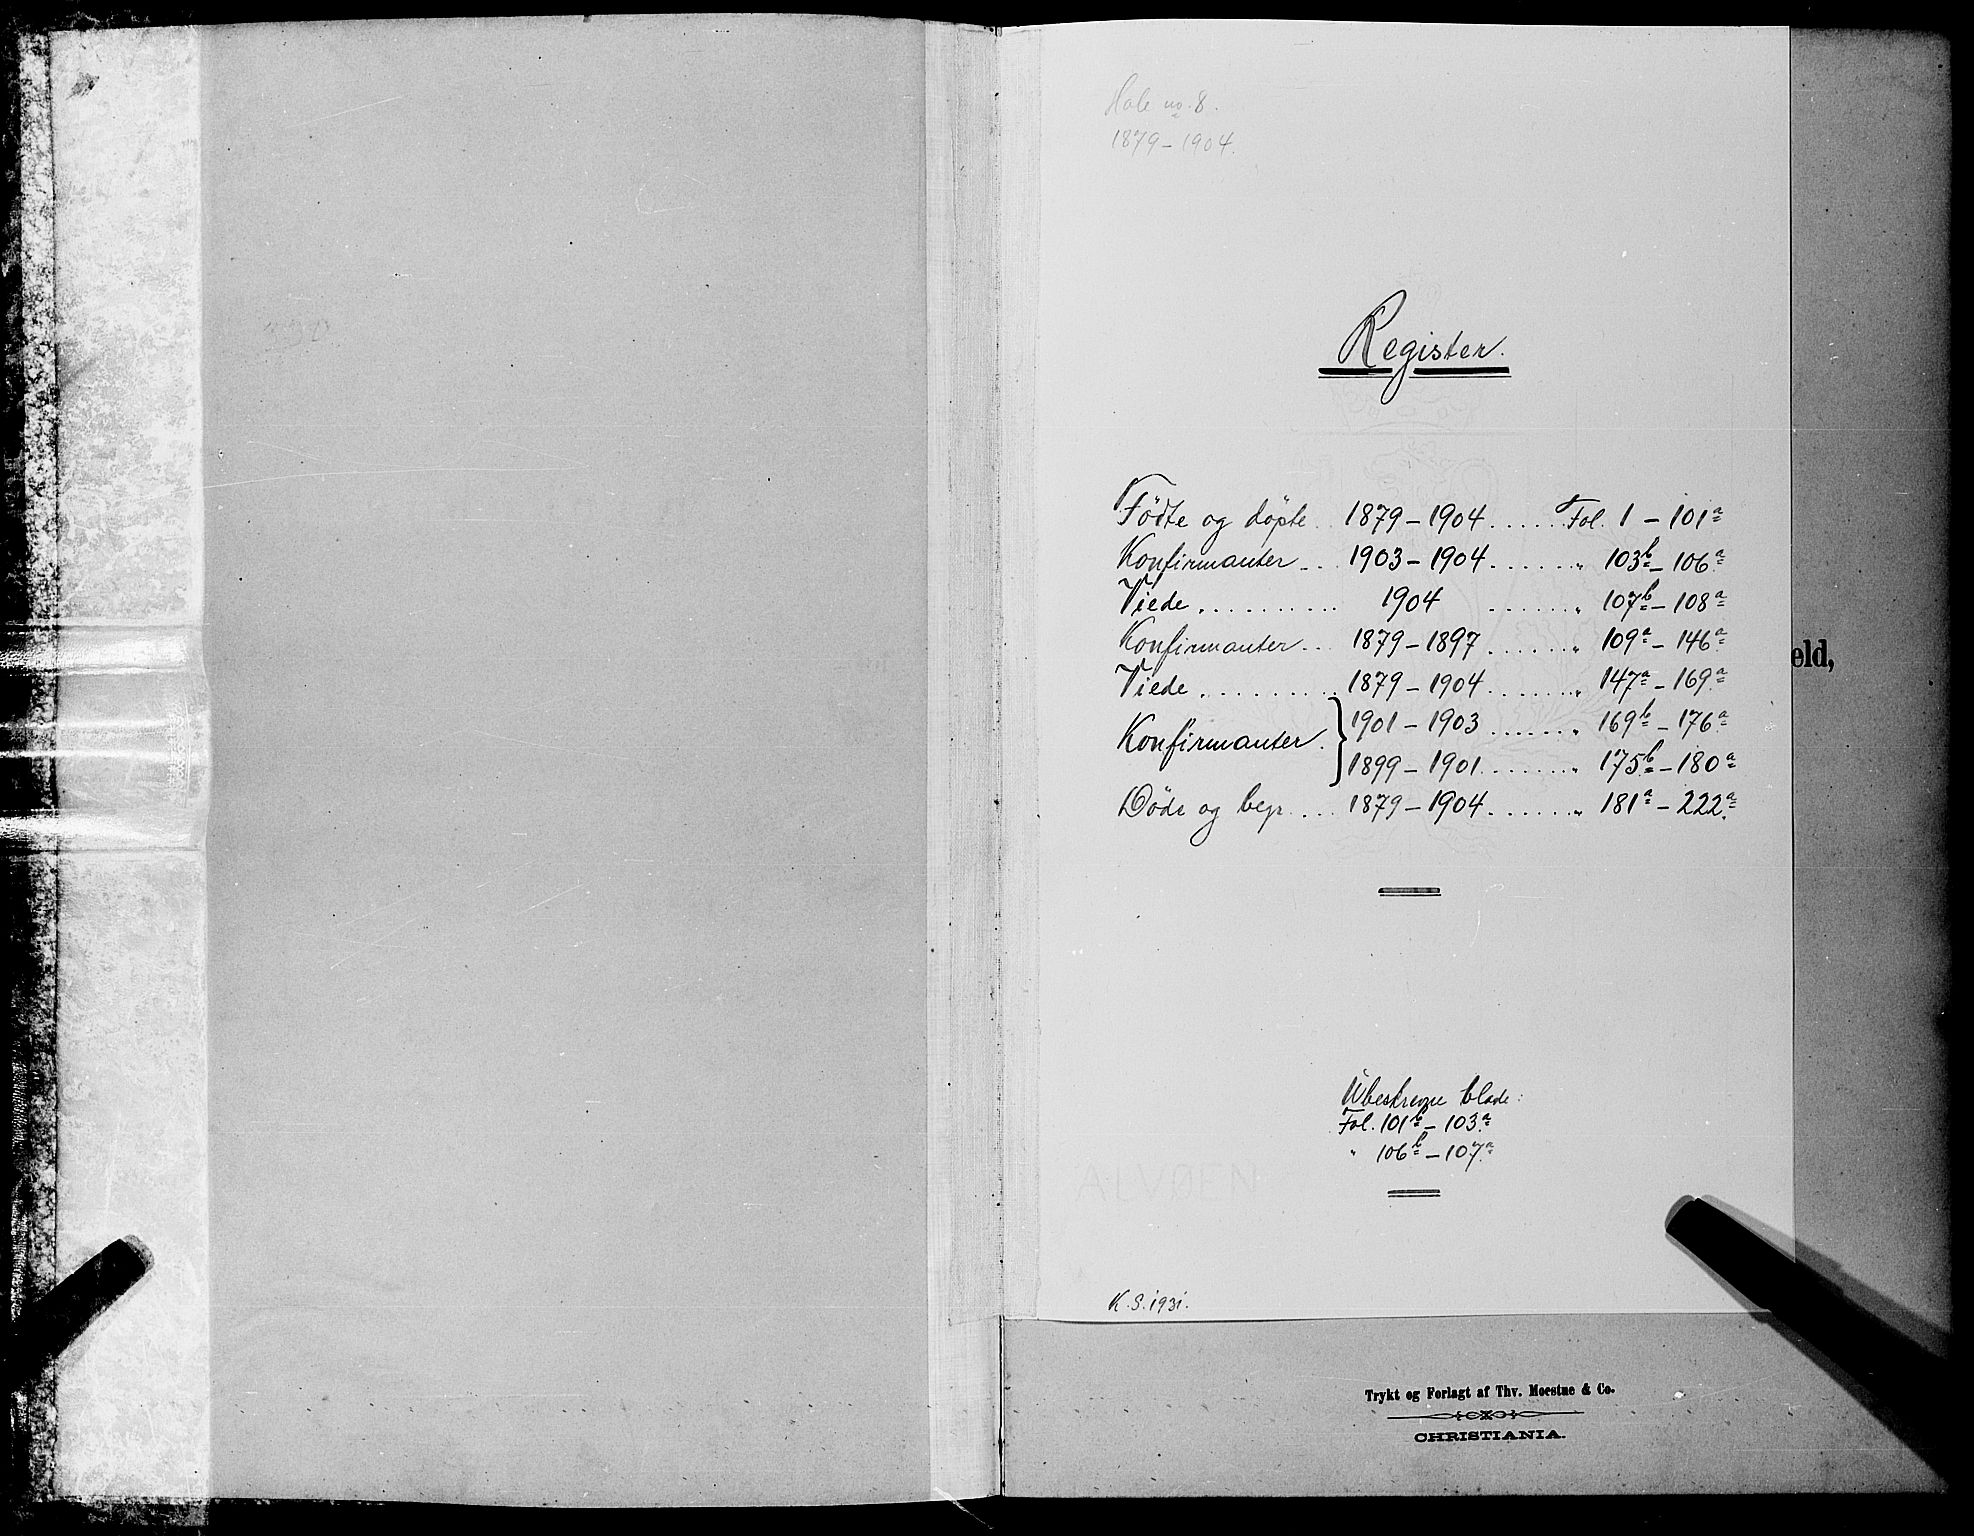 Hole no. 8.
1879 - 1904.
Register.
Födte og döpte .. 1879 - 1904 ..... Fol. 1 - 101a
Konfirmanter ... 1903 - 1904 ...... " 103b - 106a
Viede .......... 1904 ...... " 107b - 108a
Konfirmanter ... 1879 - 1897 ...... " 109a - 146a
Viede .......... 1879 - 1904 ...... " 147a - 169a
Konfirmanter. } 1901 - 1903 ...... " 169b - 176a
1899 - 1901 ...... " 175b - 180a
Döde og begr. ... 1879 - 1904 ...... " 181a - 222a
Ubeskrevne blade:
Fol. 101b - 103a
" 106b - 107a
ALVØEN
K. S. 1931.
eld,
Trykt og Forlagt af Thv. Moestue & Co.
CHRISTIANIA.